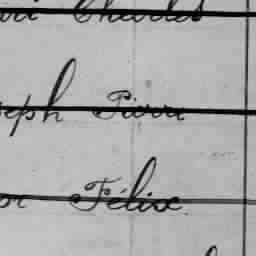 Charles
eph Pierre
or Félix